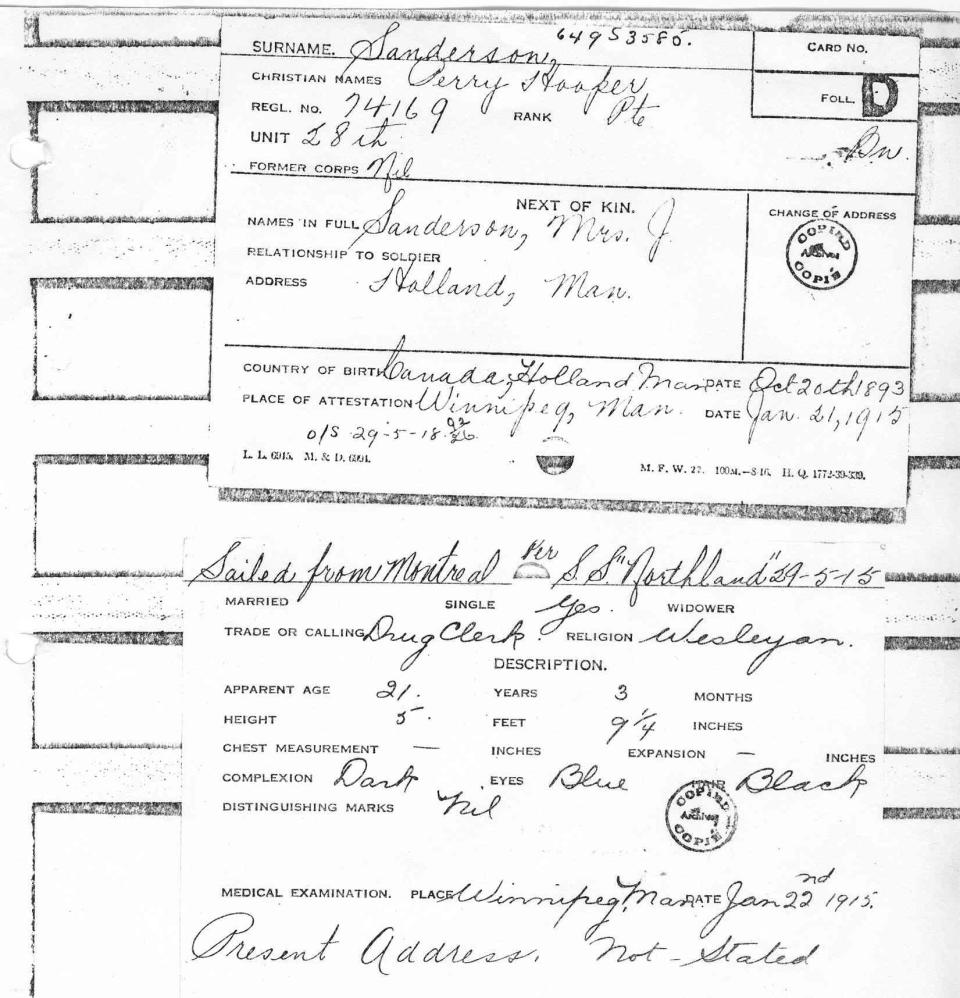 64953585.
SURNAME. Sanderson,
CARD NO.
CHRISTIAN NAMES Perry Hooper
FOLL. D
REGL. NO. 74169 RANK Pte
UNIT 28th Bn.
FORMER CORPS Nil
NEXT OF KIN.
CHANGE OF ADDRESS
NAMES IN FULL Sanderson, Mrs. J.
RELATIONSHIP TO SOLDIER
ADDRESS Holland, Man.
COPIED
Archives
COPIÉ
COUNTRY OF BIRTH Canada, Holland Man DATE Oct 20th 1893
PLACE OF ATTESTATION Winnipeg, Man. DATE Jan. 21, 1915
O/S 29-5-18
L. L. 6945. M. & D. 6994.
M. F. W. 22. 100M.—8-16. H. Q. 1772-39-339.
Sailed from Montreal Per S.S. "Northland" 29-5-15
MARRIED SINGLE Yes. WIDOWER
TRADE OR CALLING Drug Clerk. RELIGION Wesleyan.
DESCRIPTION.
APPARENT AGE 21. YEARS 3 MONTHS
HEIGHT 5. FEET 9 1/4 INCHES
CHEST MEASUREMENT — INCHES EXPANSION — INCHES
COMPLEXION Dark EYES Blue HAIR Black
DISTINGUISHING MARKS Nil
COPIED
Archives
COPIÉ
MEDICAL EXAMINATION. PLACE Winnipeg, Man DATE Jan 22nd 1915.
Present Address. Not-Stated